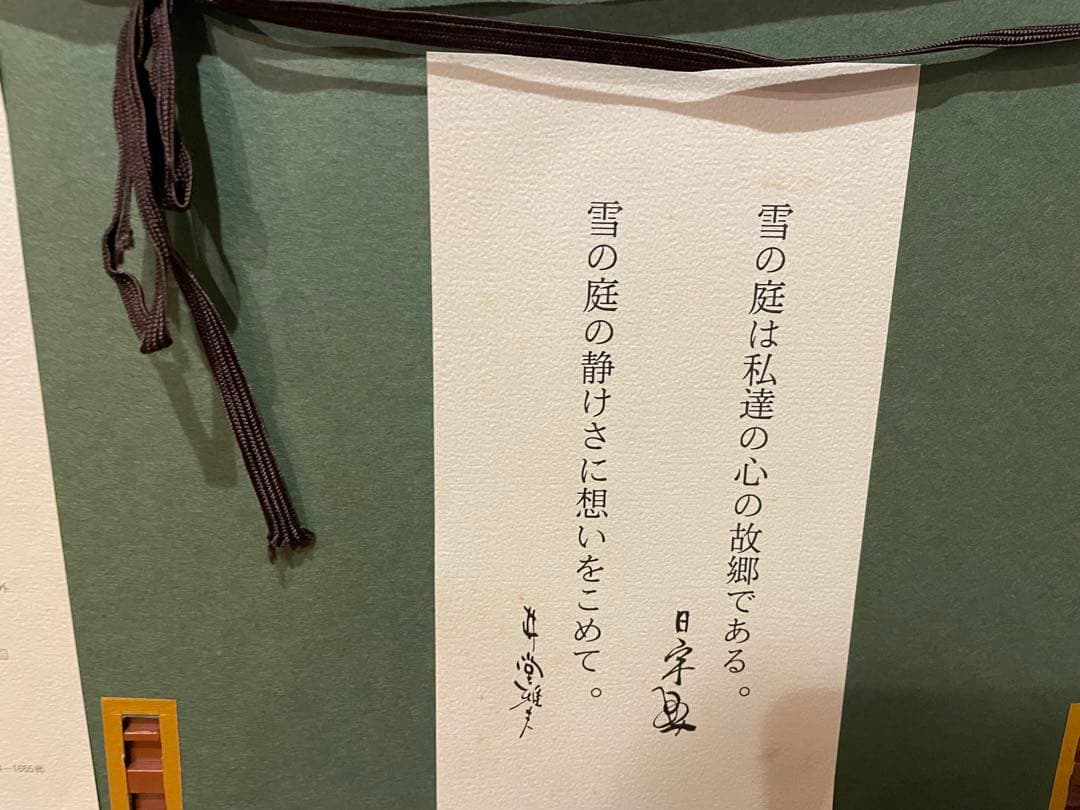 雪の庭は私達の心の故郷である。
日宇
雪の庭の静けさに想いをこめて。
井堂雅夫